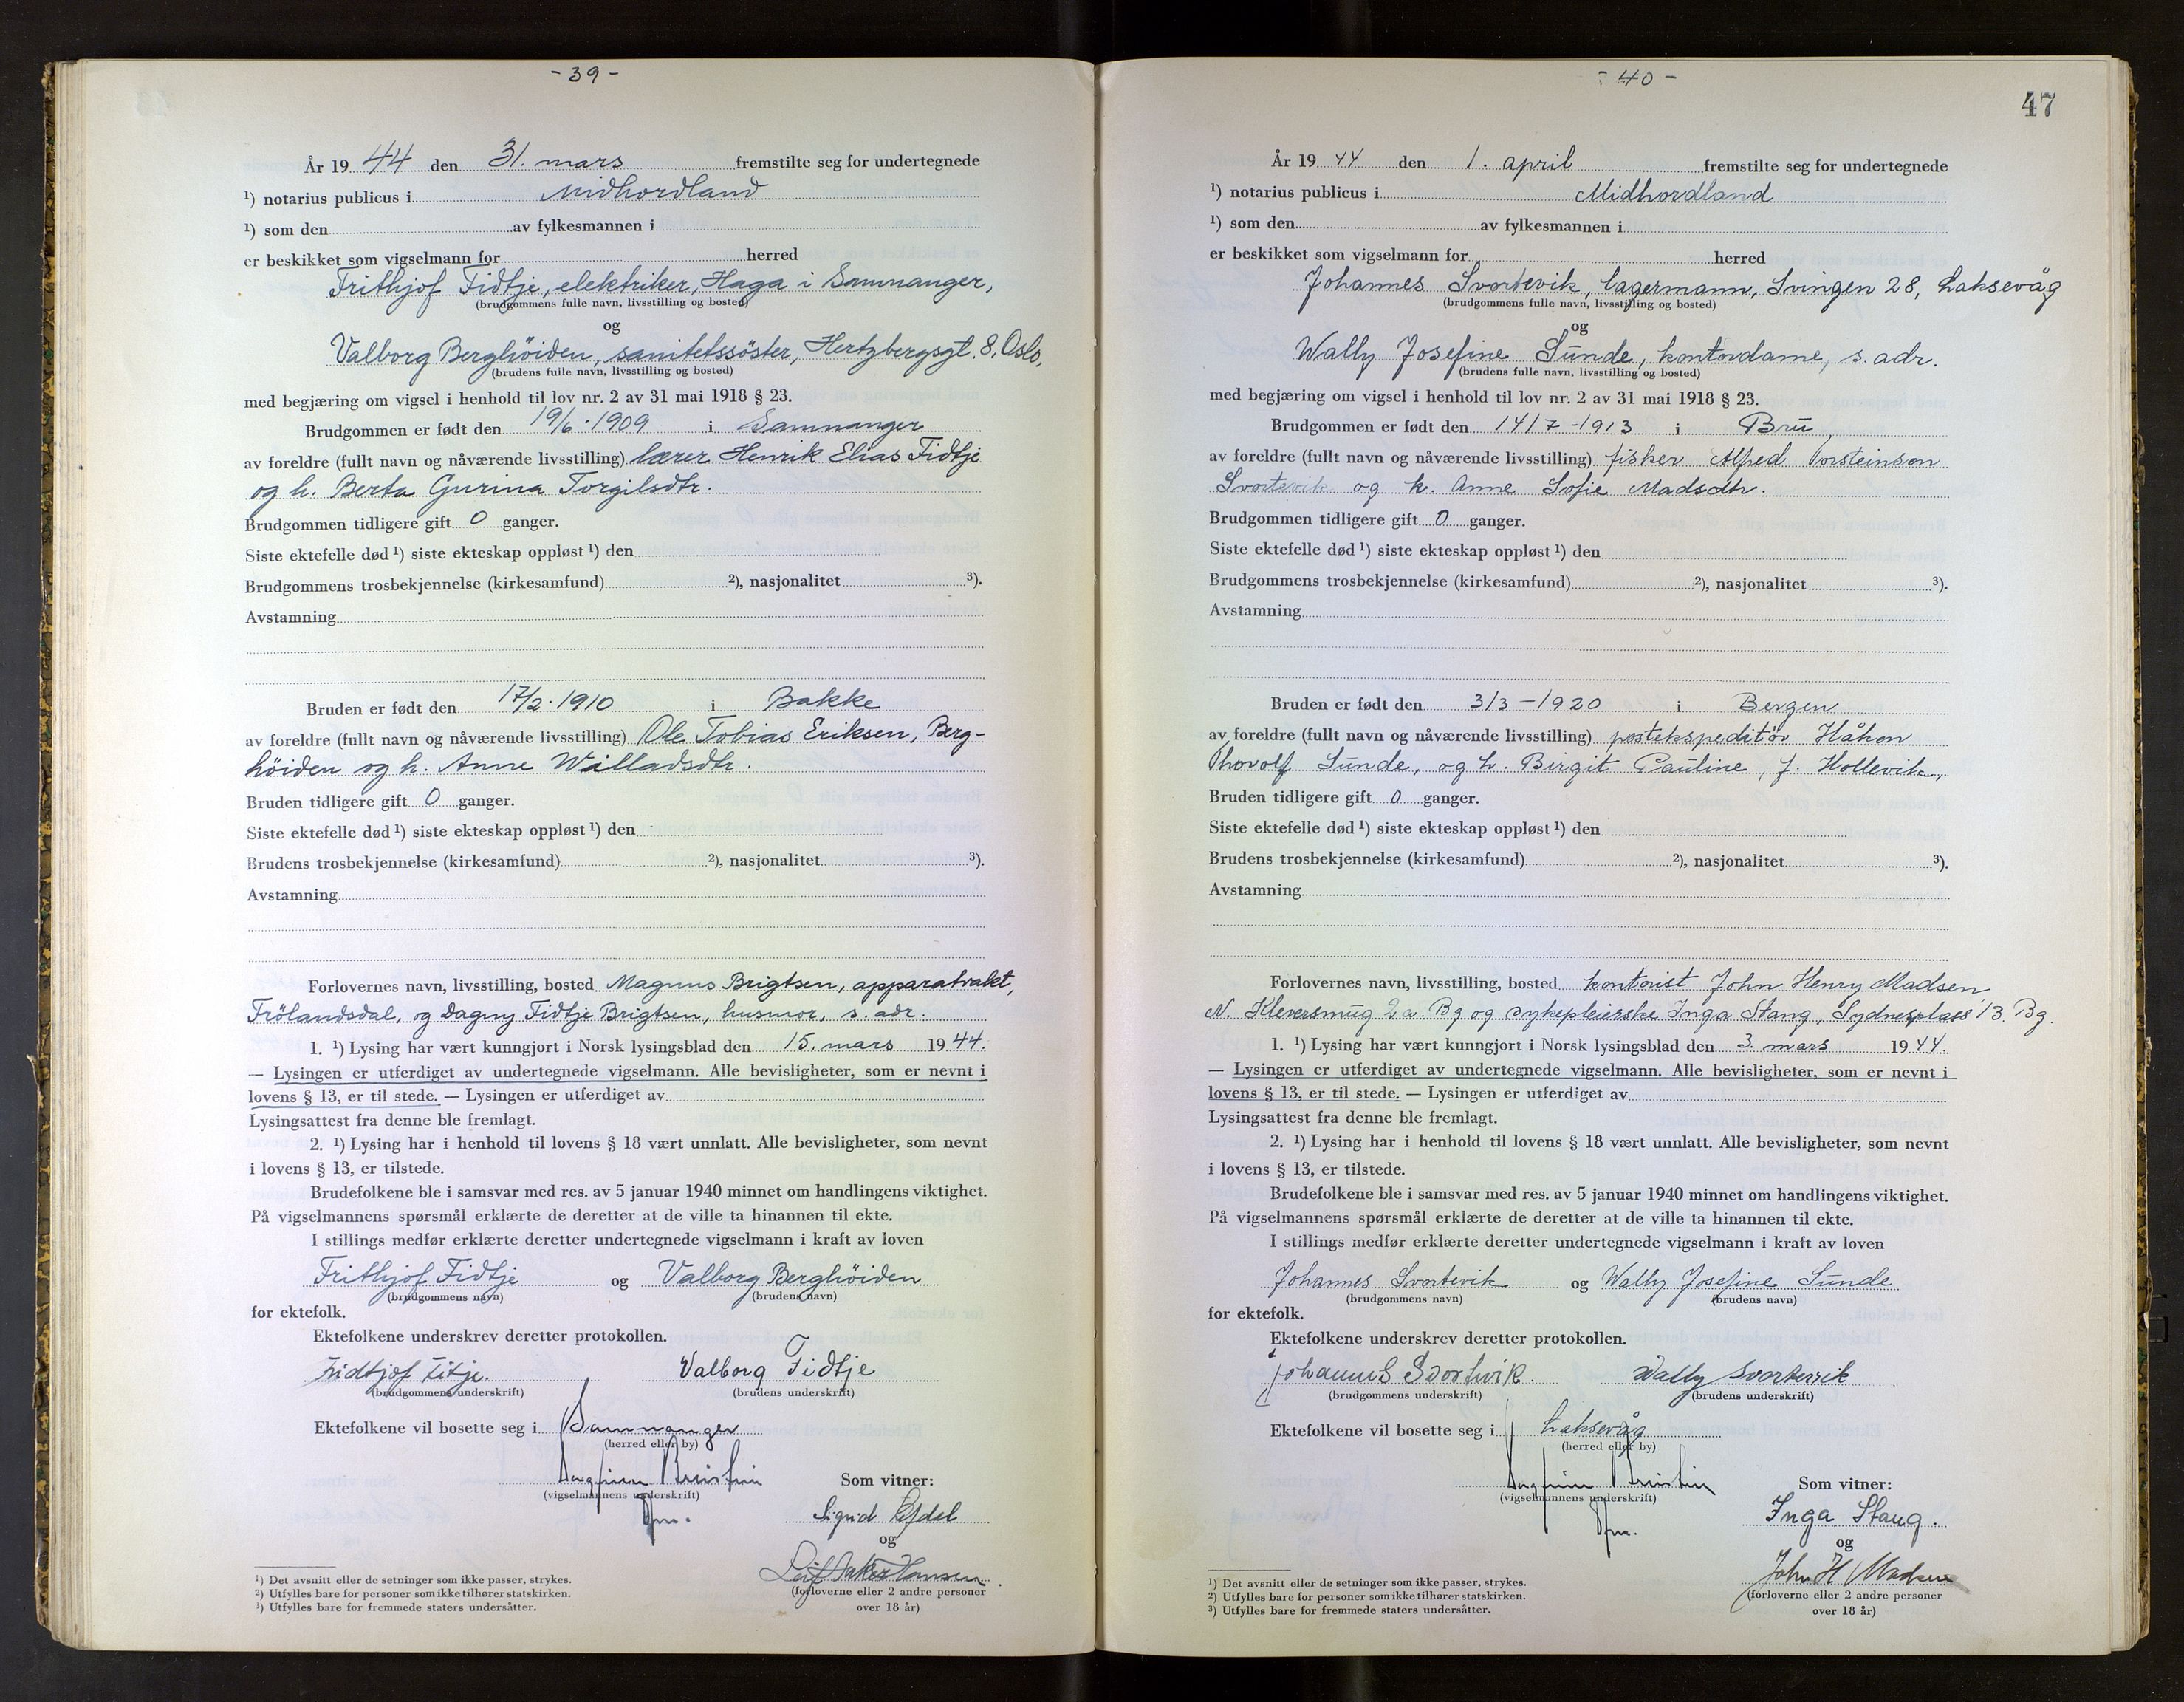 - 39 -
År 19 44 den 31. mars fremstilte seg for undertegnede
1) notarius publicus i Midhordland
1) som den av fylkesmannen i
er beskikket som vigselmann for herred
Frithjof Fidtje, elektriker, Haga i Samnanger,
(brudgommens fulle navn, livsstilling og bosted)
og
Valborg Berghöiden, sanitetssöster, Hertzbergsgt. 8, Oslo,
(brudens fulle navn, livsstilling og bosted)
med begjæring om vigsel i henhold til lov nr. 2 av 31 mai 1918 § 23.
Brudgommen er født den 19/6 · 1909 i Samnanger
av foreldre (fullt navn og nåværende livsstilling) lærer Henrik Elias Fidtje
og h. Berta Gurina Torgilsdtr.
Brudgommen tidligere gift 0 ganger.
Siste ektefelle død 1) siste ekteskap oppløst 1) den
Brudgommens trosbekjennelse (kirkesamfund) 2), nasjonalitet 3).
Avstamning
Bruden er født den 17/2 · 1910 i Bakke
av foreldre (fullt navn og nåværende livsstilling) Ole Tobias Eriksen, Berg-
höiden og h. Anne Willadsdtr.
Bruden tidligere gift 0 ganger.
Siste ektefelle død 1) siste ekteskap oppløst 1) den
Brudens trosbekjennelse (kirkesamfund) 2), nasjonalitet 3).
Avstamning
Forlovernes navn, livsstilling, bosted Magnus Brigtsen, apparatvakt,
Frölandsdal, og Dagny Fidtje Brigtsen, husmor, s. adr.
1. 1) Lysing har vært kunngjort i Norsk lysingsblad den 15. mars 19 44.
— Lysingen er utferdiget av undertegnede vigselmann. Alle bevisligheter, som er nevnt i
lovens § 13, er til stede. — Lysingen er utferdiget av
Lysingsattest fra denne ble fremlagt.
2. 1) Lysing har i henhold til lovens § 18 vært unnlatt. Alle bevisligheter, som nevnt
i lovens § 13, er tilstede.
Brudefolkene ble i samsvar med res. av 5 januar 1940 minnet om handlingens viktighet.
På vigselmannens spørsmål erklærte de deretter at de ville ta hinannen til ekte.
I stillings medfør erklærte deretter undertegnede vigselmann i kraft av loven
Frithjof Fidtje og Valborg Berghöiden
(brudgommens navn) (brudens navn)
for ektefolk.
Ektefolkene underskrev deretter protokollen.
Fridtjof Fitje. Valborg Fidtje
(brudgommens underskrift) (brudens underskrift)
Ektefolkene vil bosette seg i Samnanger
(herred eller by)
Som vitner:
(vigselmannens underskrift)
Sigrid
og
Leif Hansen.
(forloverne eller 2 andre personer
over 18 år)
1) Det avsnitt eller de setninger som ikke passer, strykes.
2) Utfylles bare for personer som ikke tilhører statskirken.
3) Utfylles bare for fremmede staters undersåtter.
- 40 -
47
År 19 44 den 1. april fremstilte seg for undertegnede
1) notarius publicus i Midhordland
1) som den av fylkesmannen i
er beskikket som vigselmann for herred
Johannes Svortevik, lagermann, Svingen 28, Laksevåg
(brudgommens fulle navn, livsstilling og bosted)
og
Wally Josefine Sunde, kontordame, s. adr.
(brudens fulle navn, livsstilling og bosted)
med begjæring om vigsel i henhold til lov nr. 2 av 31 mai 1918 § 23.
Brudgommen er født den 14/7 - 1913 i Bru
av foreldre (fullt navn og nåværende livsstilling) fisker Alfred Torsteinson
Svortevik og h. Anne Sofie Madsdtr.
Brudgommen tidligere gift 0 ganger.
Siste ektefelle død 1) siste ekteskap oppløst 1) den
Brudgommens trosbekjennelse (kirkesamfund) 2), nasjonalitet 3).
Avstamning
Bruden er født den 3/3 - 1920 i Bergen
av foreldre (fullt navn og nåværende livsstilling) postekspeditör Håkon
Thorolf Sunde, og h. Birgit Pauline, f. Hollevik,
Bruden tidligere gift 0 ganger.
Siste ektefelle død 1) siste ekteskap oppløst 1) den
Brudens trosbekjennelse (kirkesamfund) 2), nasjonalitet 3).
Avstamning
Forlovernes navn, livsstilling, bosted kontorist John Henry Madsen
N. Kleversmug 2a. Bg og sykepleierske Inga Stang, Sydnesplass 13. Bg.
1. 1) Lysing har vært kunngjort i Norsk lysingsblad den 3. mars 19 44.
— Lysingen er utferdiget av undertegnede vigselmann. Alle bevisligheter, som er nevnt i
lovens § 13, er til stede. — Lysingen er utferdiget av
Lysingsattest fra denne ble fremlagt.
2. 1) Lysing har i henhold til lovens § 18 vært unnlatt. Alle bevisligheter, som nevnt
i lovens § 13, er tilstede.
Brudefolkene ble i samsvar med res. av 5 januar 1940 minnet om handlingens viktighet.
På vigselmannens spørsmål erklærte de deretter at de ville ta hinannen til ekte.
I stillings medfør erklærte deretter undertegnede vigselmann i kraft av loven
Johannes Svortevik og Wally Josefine Sunde
(brudgommens navn) (brudens navn)
for ektefolk.
Ektefolkene underskrev deretter protokollen.
Johannes Svortevik. Wally Svortevik
(brudgommens underskrift) (brudens underskrift)
Ektefolkene vil bosette seg i Laksevåg
(herred eller by)
Som vitner:
(vigselmannens underskrift)
Inga Stang.
og
John H Madsen
(forloverne eller 2 andre personer
over 18 år)
1) Det avsnitt eller de setninger som ikke passer, strykes.
2) Utfylles bare for personer som ikke tilhører statskirken.
3) Utfylles bare for fremmede staters undersåtter.